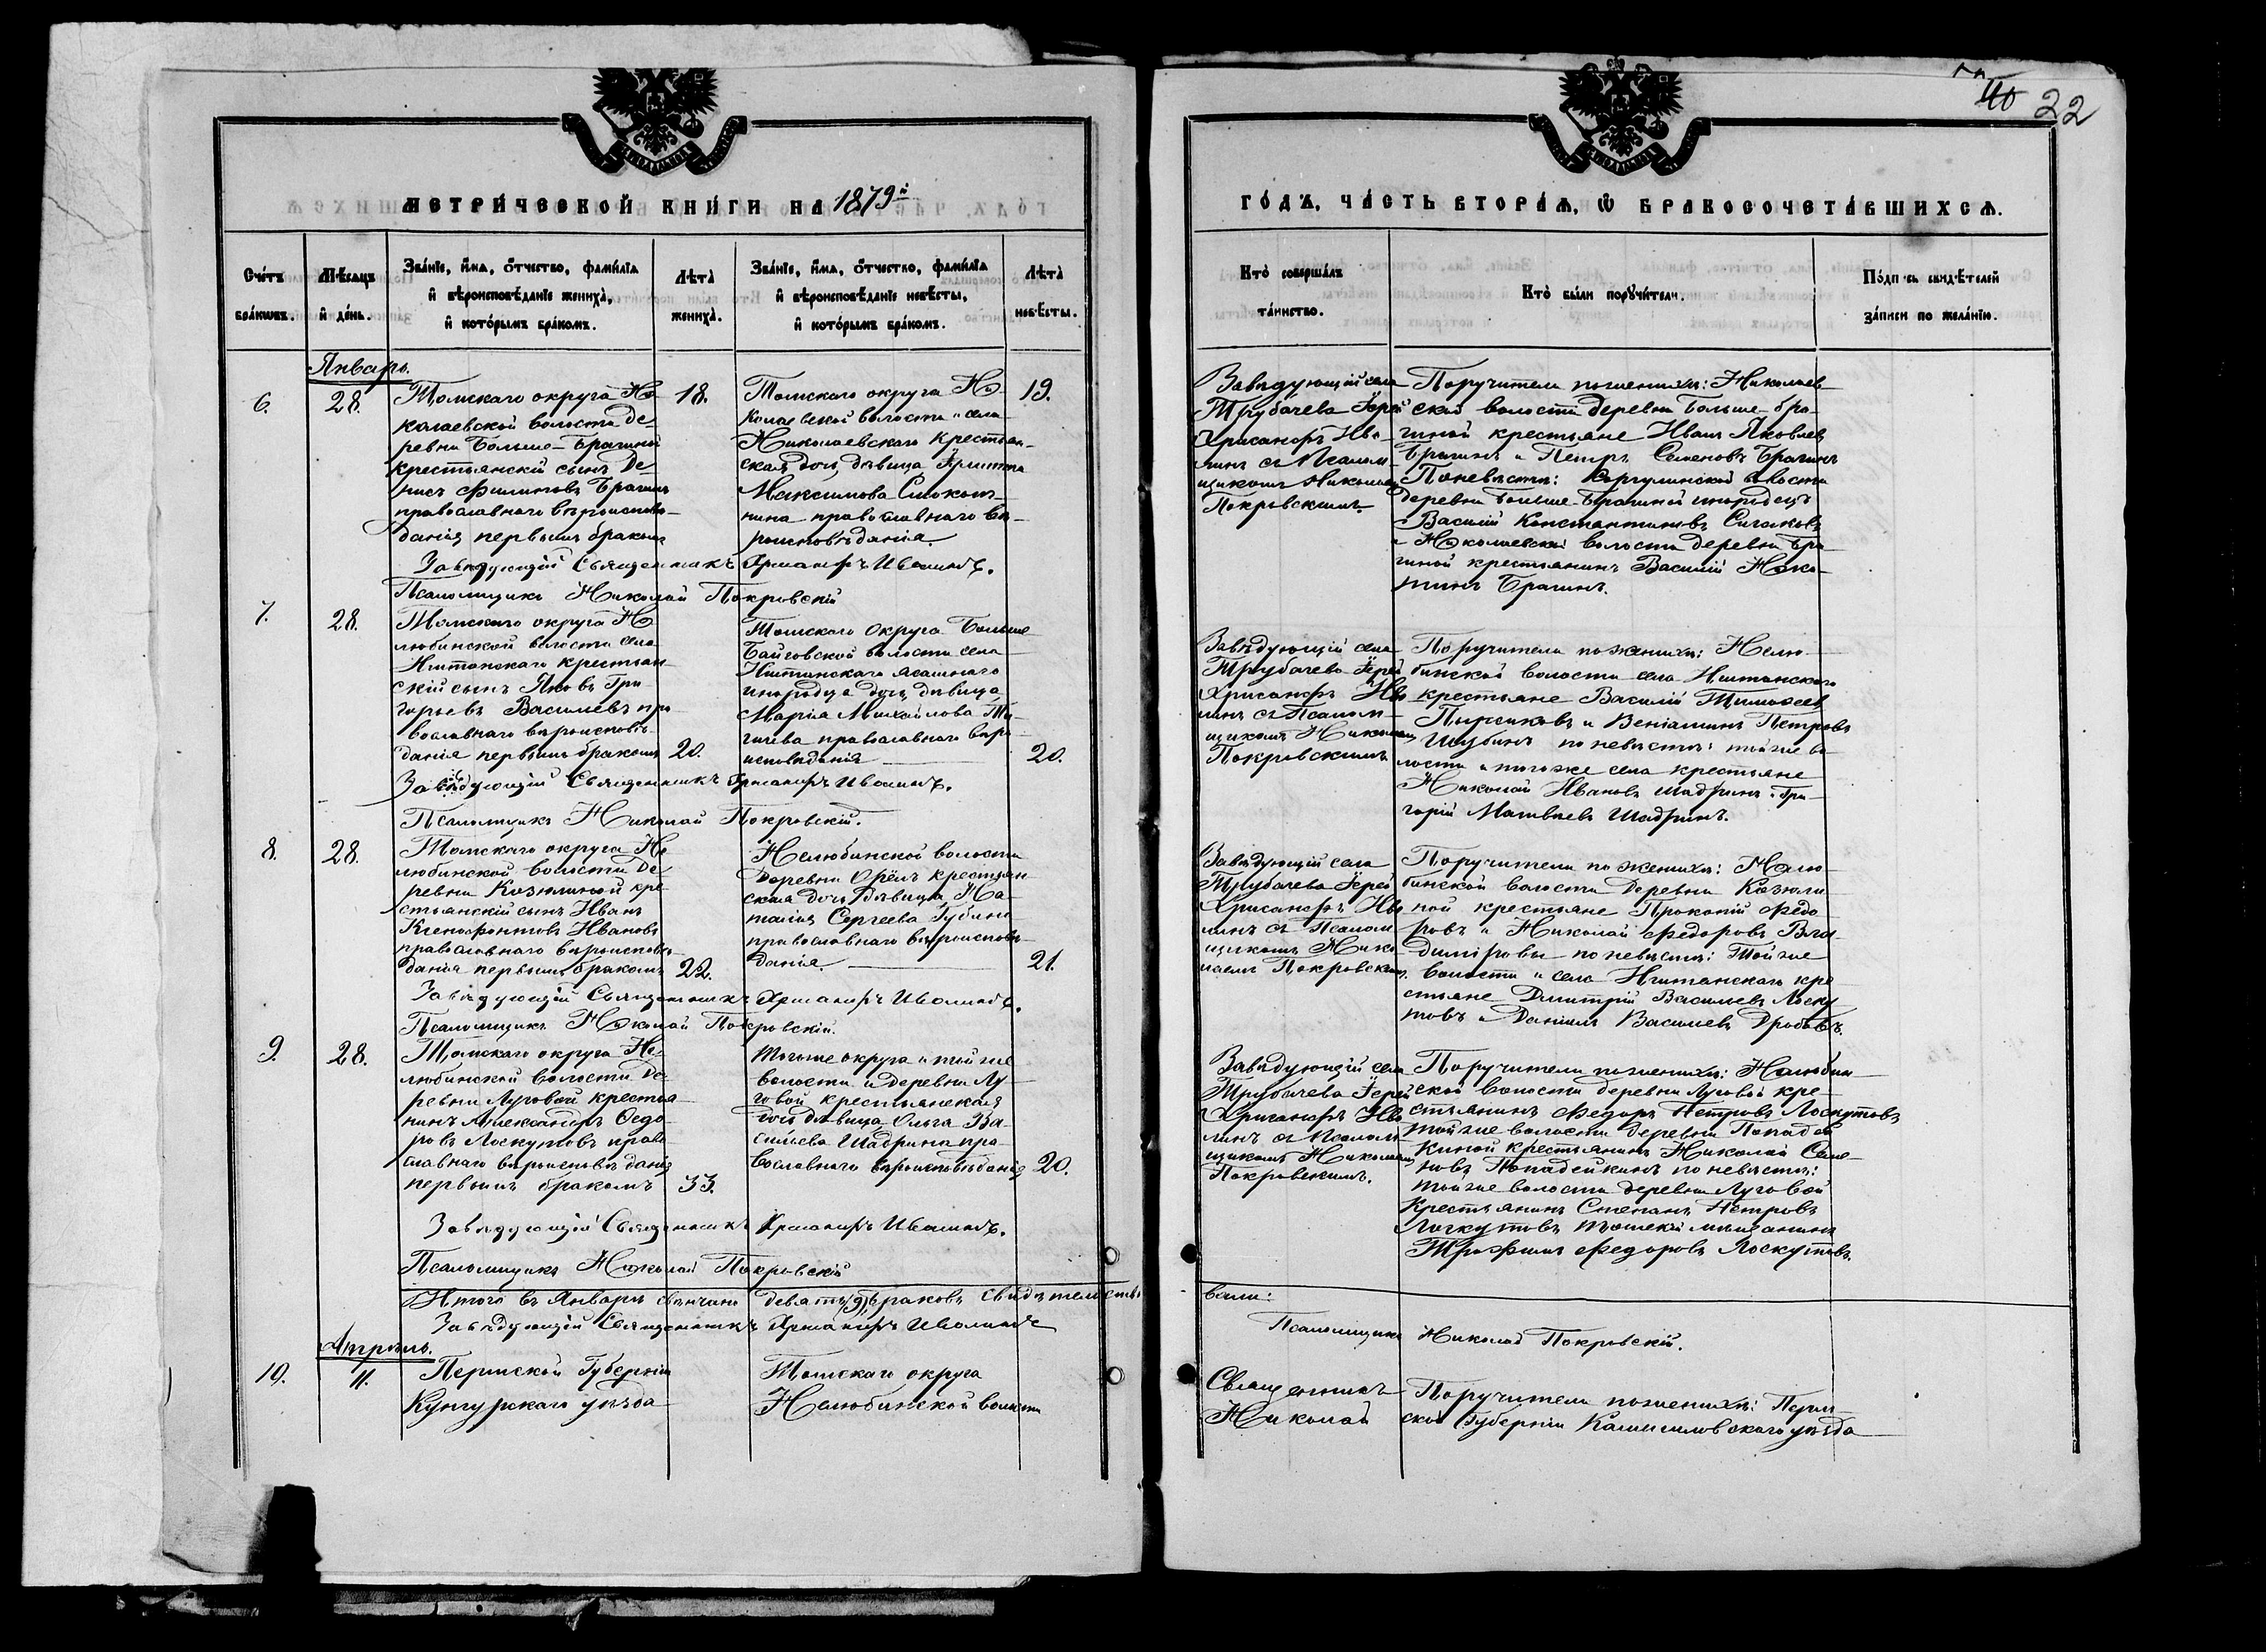 22
МЕТРИ́ЧЕСКОЙ КНИ́ГИ НА 1879й
ГО́ДЪ, ЧА́СТЬ ВТОРА́Ѧ, Ѡ БРАКОСОЧЕТА́ВШИХСѦ.
Сче́тъ
бра́кѡвъ.
Мѣ́сѧцъ
и҆ де́нь.
Зва́нїе, и҆́мѧ, ѻ҆́тчество, фамі́лїа
и҆ вѣроисповѣ́данїе жениха̀,
и҆ кото́рымъ бра́комъ.
Лѣта̀
жениха̀.
Зва́нїе, и҆́мѧ, ѻ҆́тчество, фамі́лїа
и҆ вѣроисповѣ́данїе невѣ́сты,
и҆ кото́рымъ бра́комъ.
Лѣта̀
невѣ́сты.
Кто̀ соверша́лъ
та́инство.
Кто̀ бы́ли поручи́тели.
По́дпись свидѣ́телей
за́писи по жела́нїю.
Январь.
6.
28.
Томскаго округа Ни-
колаевской волости де-
ревни Больше-Брагиной
крестьянскій сынъ Де-
нисъ Филиповъ Брагинъ
православнаго вѣроиспове-
данія первымъ бракомъ
18.
Томскаго округа Ни-
колаевской волости и села
Николаевскаго крестьян-
ская дочь дѣвица
Максимова
православнаго вѣ-
роисповѣданія.
19.
Завѣдующій села
Трубачева Іерей
Хрисанфъ Иво-
линъ съ Псалом-
щикомъ Николаемъ
Покровскимъ.
Поручители по женихѣ: Николаев-
ской волости деревни Больше-Бра-
гиной крестьяне Иванъ Яковлевъ
Брагинъ и Петръ Семеновъ Брагинъ
По невѣстѣ: волости
деревни Больше-Брагиной инородецъ
Василій Константиновъ
и Николаевской волости деревни Бра-
гиной крестьянинъ Василій Ники-
тинъ Брагинъ.
Завѣдующій Священникъ Хрисанфъ Иволинъ.
Псаломщикъ Николай Покровскій
7.
28.
Томскаго округа Не-
любинской волости села
Иштанскаго крестьян-
скій сынъ Яковъ Гри-
горьевъ Васильевъ пра-
вославнаго вѣроисповѣ-
данія первымъ бракомъ
20.
Томскаго округа Больше-
Байговской волости села
Иштанскаго ясашнаго
инородца дочь дѣвица
Марія Михайлова
православнаго вѣро-
исповѣданія
20.
Завѣдующій села
Трубачева Іерей
Хрисанфъ Иво-
линъ съ Псалом-
щикомъ Николаемъ
Покровскимъ
Поручители по женихѣ: Нелю-
бинской волости села Иштанскаго
крестьяне Василій Тимофеевъ
и Веніаминъ Петровъ
Шубинъ по невѣстѣ: тойже во-
лости и тогоже села крестьяне
Николай Ивановъ Шадринъ и Гри-
горій Матвѣевъ Шадринъ.
Завѣдующій Священникъ Хрисанфъ Иволинъ.
Псаломщикъ Николай Покровскій.
8.
28.
Томскаго округа Не-
любинской волости де-
ревни Козюлиной кре-
стьянскій сынъ Иванъ
Ксенофонтовъ Ивановъ
православнаго вѣроисповѣ-
данія первымъ бракомъ
22.
Нелюбинской волости
деревни Орёлъ крестьян-
ская дочь дѣвица На-
талія Сергеева Губина
православнаго вѣроисповѣ-
данія.
21.
Завѣдующій села
Трубачева Іерей
Хрисанфъ Иво-
линъ съ Псалом-
щикомъ Нико-
лаемъ Покровскимъ.
Поручители по женихѣ: Нелю-
бинской волости деревни Козюли-
ной крестьяне Прокопій Федо-
ровъ и Николай Федоровъ Вла-
диміровы по невѣстѣ: Тойже
волости и села Иштанскаго кре-
стьяне Дмитрій Васильевъ Лоску-
товъ и Даніилъ Василиев Дробовъ.
Завѣдующій Священникъ Хрисанфъ Иволинъ.
Псаломщикъ Николай Покровскій.
9.
28.
Томскаго округа Не-
любинской волости де-
ревни Луговой крестья-
нинъ Александръ Ѳедо-
ровъ Лоскутовъ право-
славнаго вѣроисповѣданія
первымъ бракомъ
33.
Тогоже округа и тойже
волости и деревни Лу-
говой крестьянская
дочь дѣвица Ольга Ва-
сильева Шадрина пра-
вославнаго вѣроисповѣданія
20.
Завѣдующій села
Трубачева Іерей
Хрисанфъ Иво-
линъ съ Псалом-
щикомъ Николаемъ
Покровскимъ.
Поручители по женихѣ: Нелюбин-
ской волости деревни Луговой кре-
стьянинъ Федоръ Петровъ Лоскутовъ
тойже волости деревни Попадей-
киной крестьянинъ Николай Семе-
новъ Попадейкинъ по невѣстѣ:
тойже волости деревни Луговой
крестьянинъ Степанъ Петровъ
Лоскутовъ Томскій мѣщанинъ
Трофимъ Федоровъ Лоскутовъ.
Завѣдующій Священникъ Хрисанфъ Иволинъ.
Псаломщикъ Николай Покровскій
Итого въ Январѣ свѣнчано девять (9) браковъ свидѣтельство-
вали:
Завѣдующій Священникъ Хрисанфъ Иволинъ
Псаломщикъ Николай Покровскій.
Апрѣль.
10.
11.
Пермской Губерніи
Кунгурскаго уѣзда
Томскаго округа
Нелюбинской волости
Священникъ
Николай
Поручители по женихѣ: Перм-
ской Губерніи Камышловскаго уѣзда